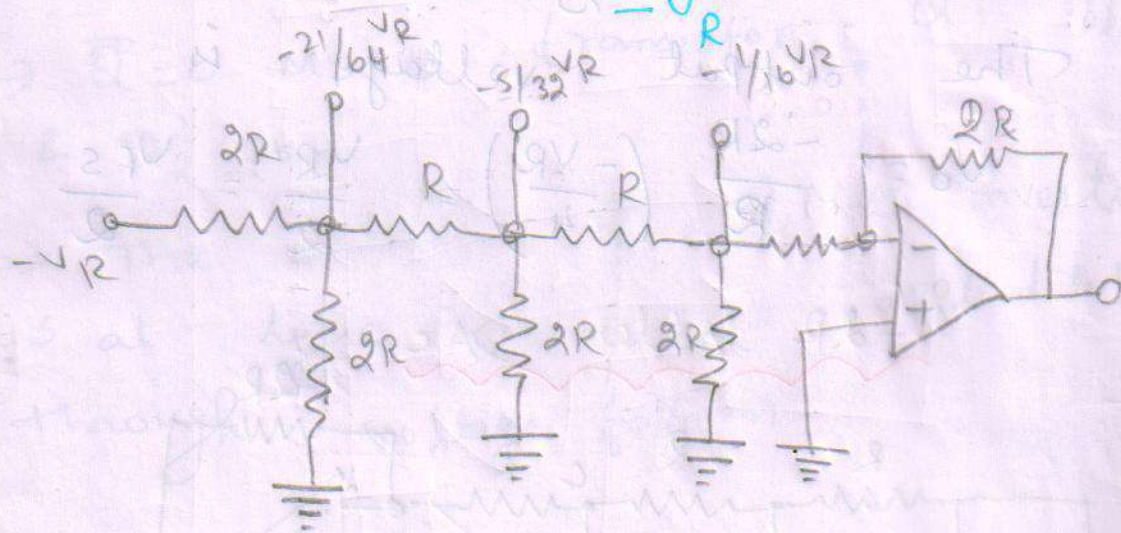 -V
R
-21/64 VR
-5/32 VR
-1/16 VR
2R
R
R
2R
-VR
2R
2R
2R
-
+